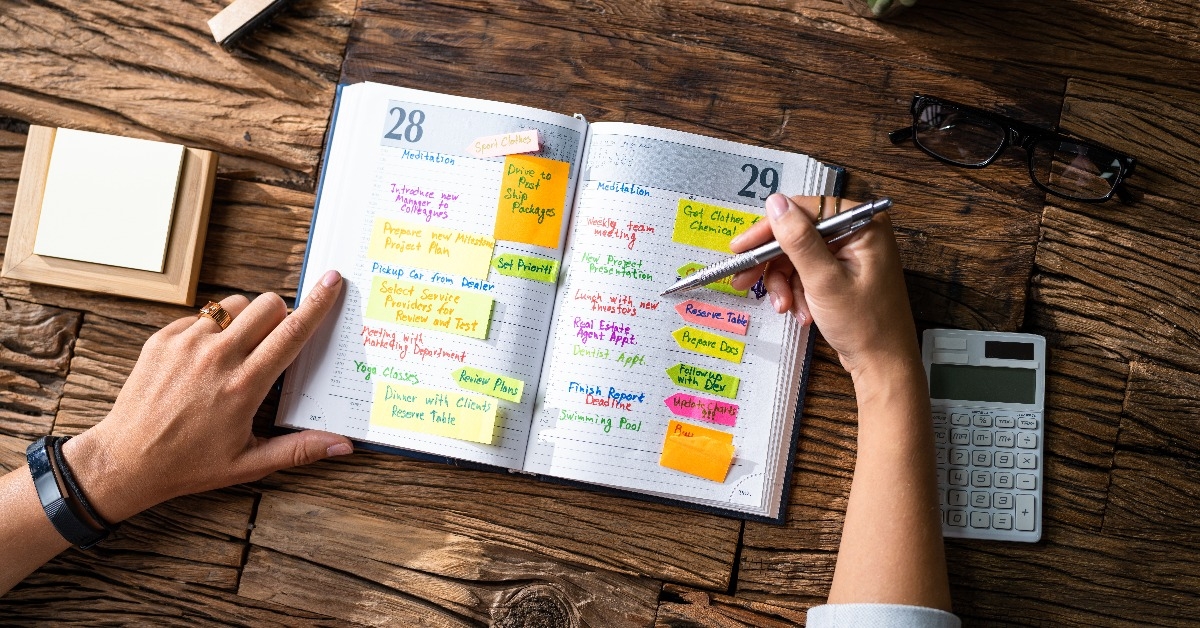 28
Sport Clothes
Meditation
Drive to
Post
Ship
Packages
Introduce new
Manager to
Colleagues
Prepare new Milestone
Project Plan
Set Prioriti
Pickup Car from Dealer
Select Service
Providers for
Review and Test
Meeting with
Marketing Department
Yoga Classes
Review Plans
Dinner with Clients
Reserve Table
29
Meditation
Get Clothes
Chemical
Weekly team
meeting
New Project
Presentation
Lunch with new
investors
Reserve Table
Real Estate
Agent Appt.
Prepare Docs
Dentist Appt.
Followup
with Dev
Finish Report
Deadline
Update Charts
Swimming Pool
Buy